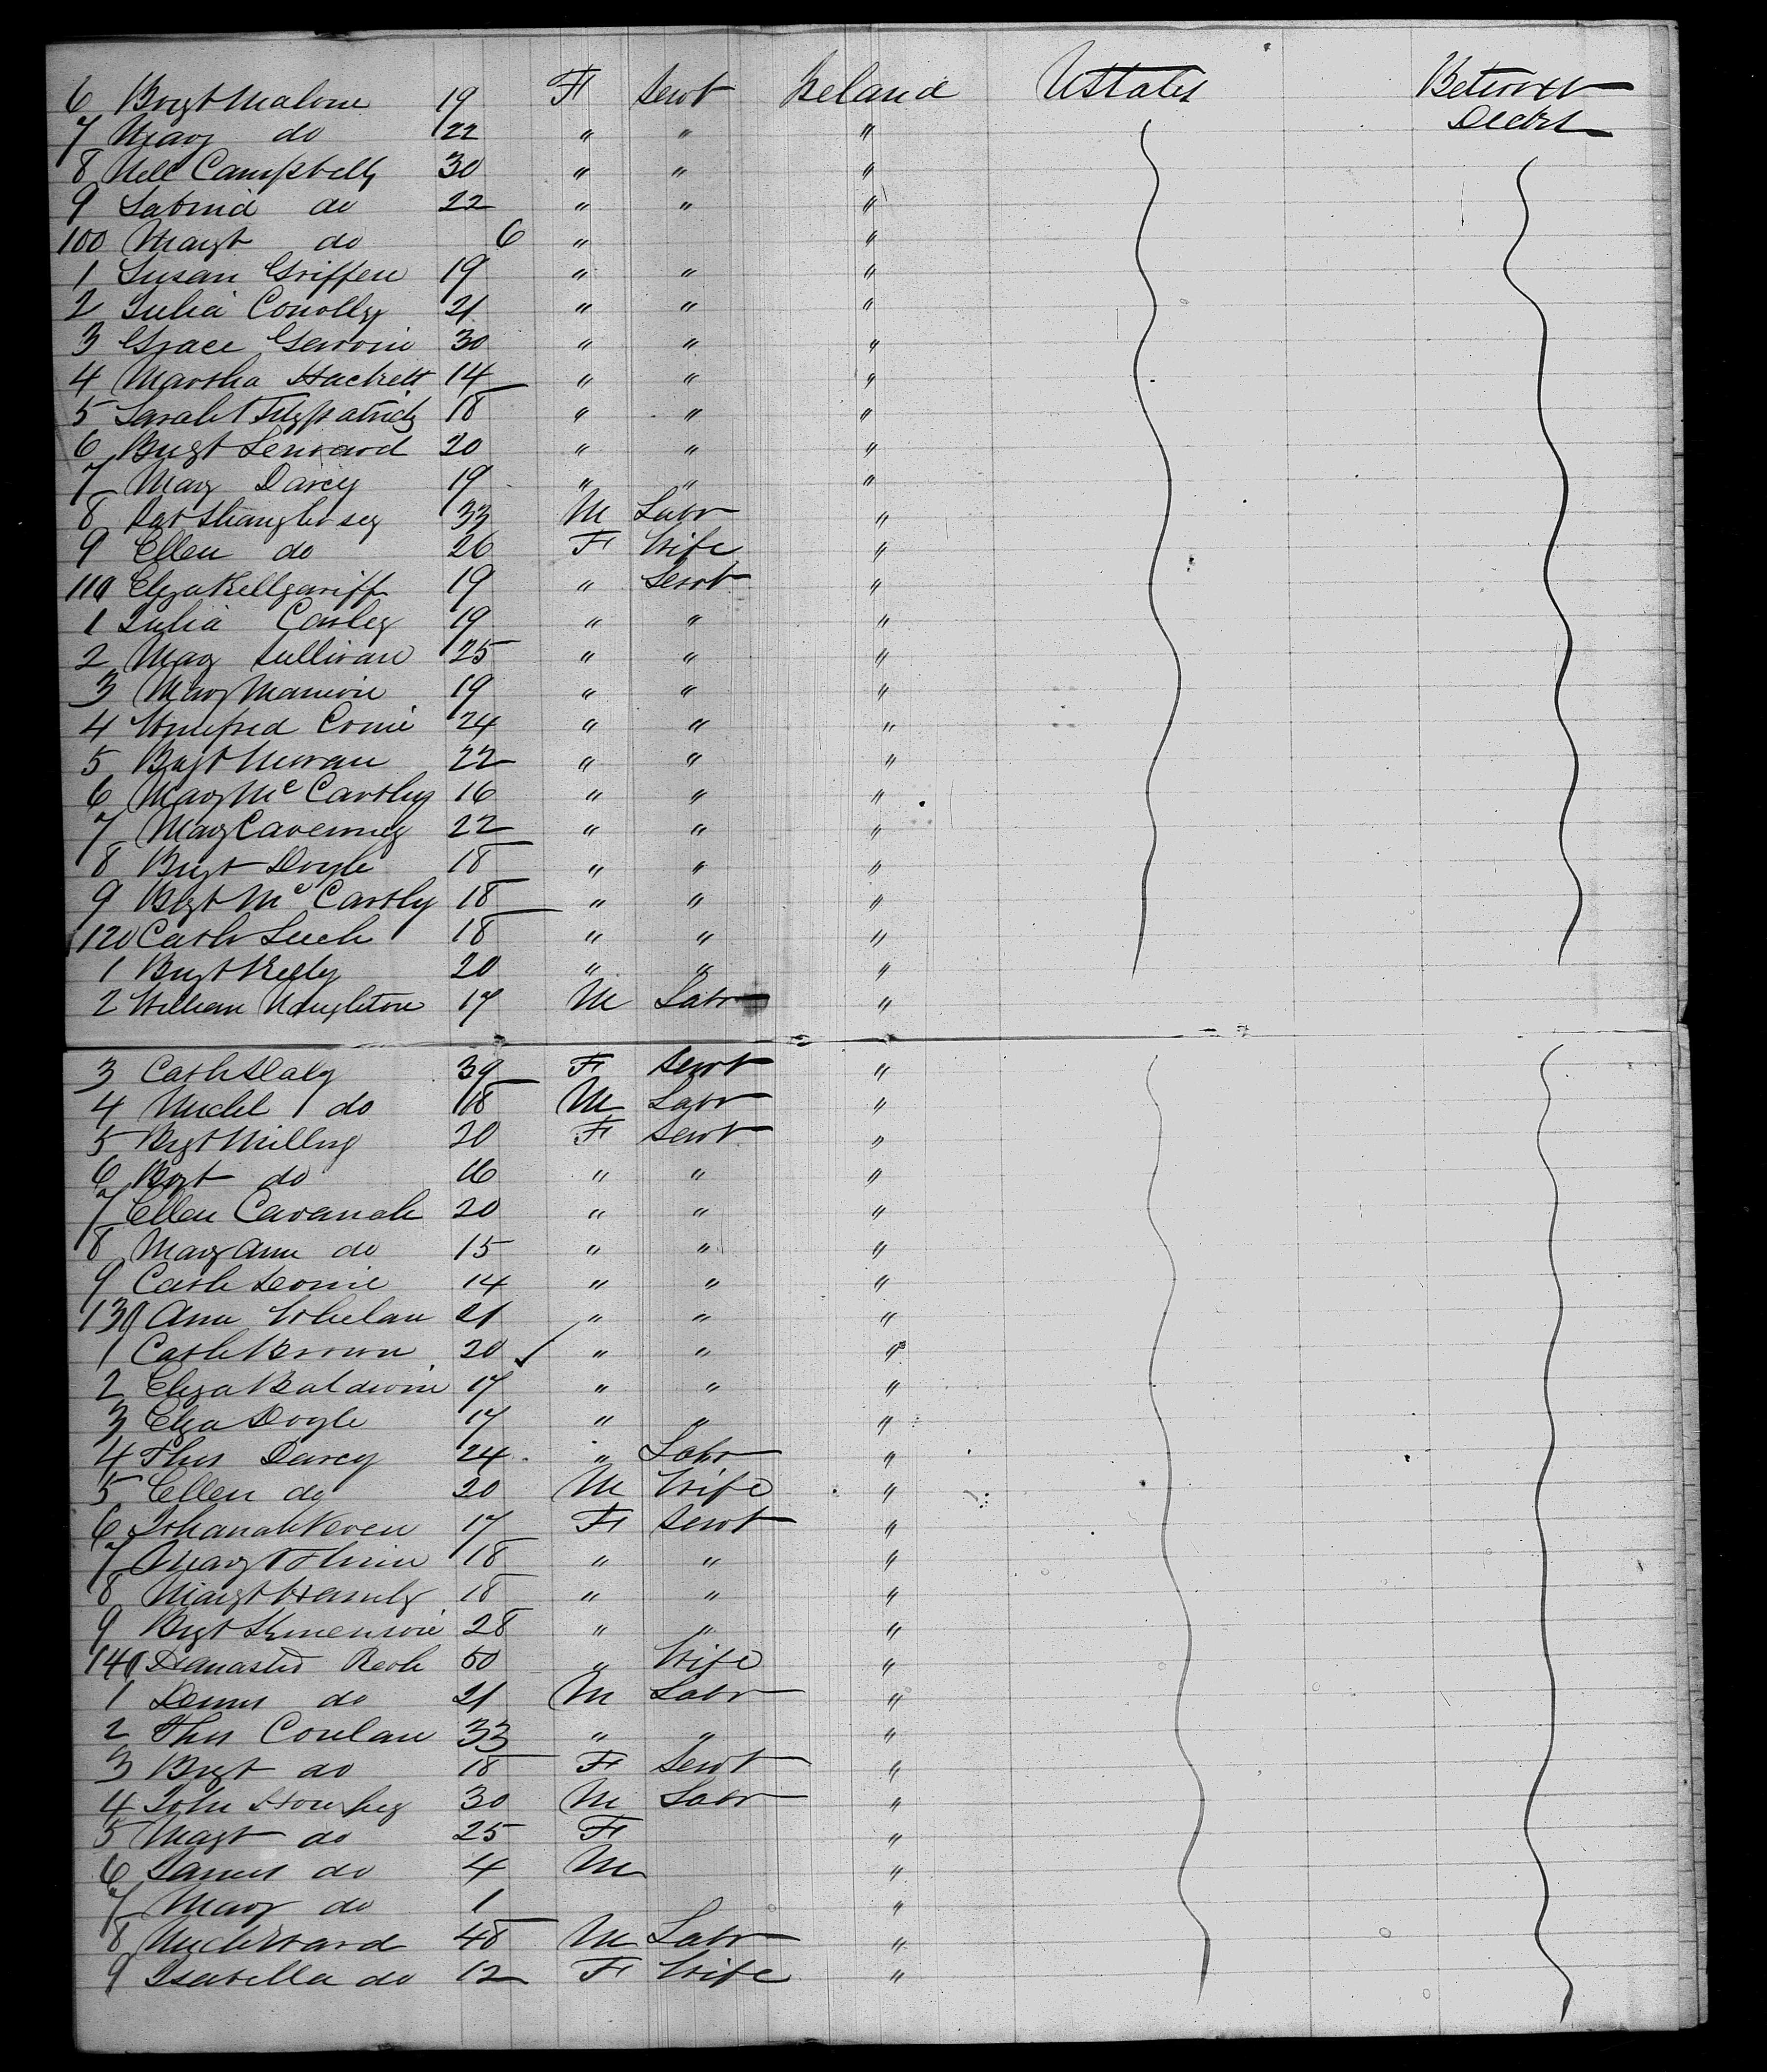 6 Brgt Malone 19 F Servt Ireland UStates Betwxt
7 Mary do 22 " " " Decks
8 Nell Campbell 30 " " "
9 do 22 " " "
100 Margt do 6 " "
1 Susan Griffen 19 " " "
2 Julia Conolly 21 " " "
3 Grace 30 " " "
4 Martha Hackett 14 " " "
5 Sarah Fitzpatrick 18 " " "
6 Brigt Lennard 20 " " "
7 Mary Darcy 19 " " "
8 Pat Shaughnsey 33 M Labr "
9 Ellen do 26 F Wife "
110 Eliza Kellgariff 19 " Servt "
1 Julia Carley 19 " " "
2 May Sullivan 25 " " "
3 Mary Mannin 19 " " "
4 Winifred 24 " " "
5 Brgt Moran 22 " " "
6 Mary McCarthy 16 " " "
7 Mary Caverney 22 " " "
8 Brgt Doyle 18 " " "
9 Brgt McCarthy 18 " " "
120 Cath Leech 18 " " "
1 Brgt Kelly 20 " " "
2 William Naughton 17 M Labr "
3 Cath Daly 39 F Servt "
4 Michl do 18 M Labr "
5 Brgt 20 F Servt "
6 Brgt do 16 " " "
7 Ellen Cavanah 20 " " "
8 Mary Ann do 15 " " "
9 Cath 14 " " "
130 Ann Whelan 21 " " "
1 Cath Brown 20 " " "
2 Eliza Baldwin 17 " " "
3 Eliza Doyle 17 " " "
4 Thos Darcy 24 " Labr "
5 Ellen do 20 M Wife "
6 Johanah 17 F Servt "
7 18 " " "
8 Margt 18 " " "
9 Brgt 28 " " "
140 50 " Wife "
1 Dennis do 21 M Labr "
2 Thos Conlan 33 " " "
3 Brgt do 18 F Servt "
4 John 30 M Labr "
5 Magt do 25 F "
6 James do 4 M "
7 Mary do 1 "
8 Michl Ward 48 M Labr "
9 Isabella do 12 F Wife "